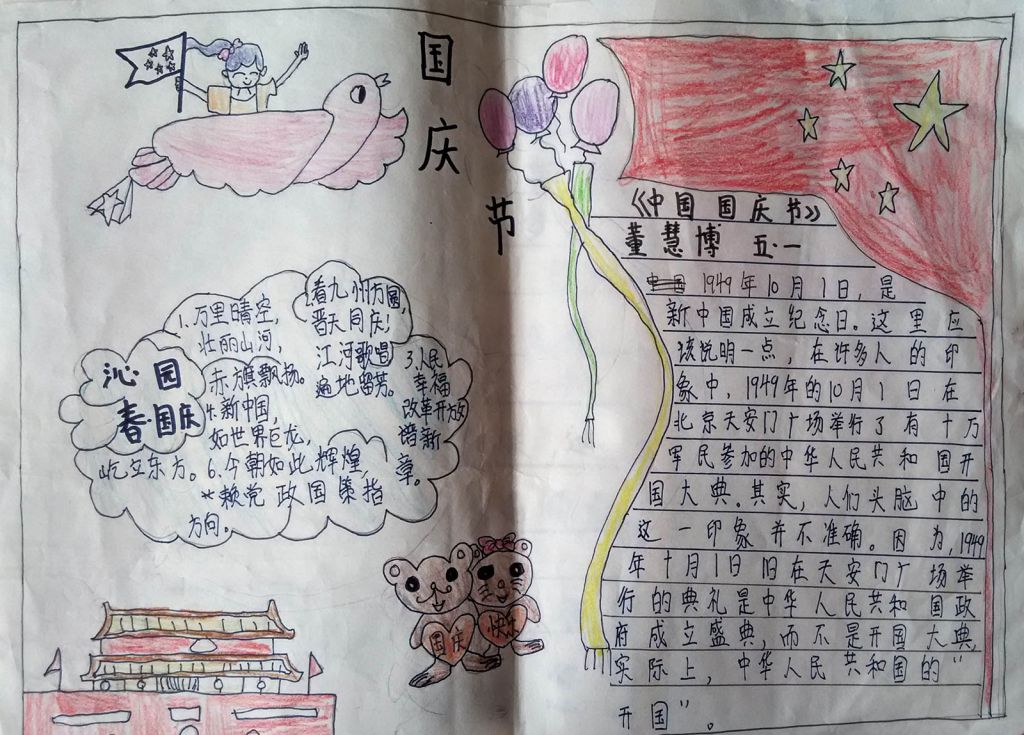 国
庆
节
沁园
春·国庆
1.万里晴空,
壮丽山河,
赤旗飘扬。
2.看九州方圆,
普天同庆!
江河歌唱
遍地留芳。
3.人民
幸福
改革开放
谱新
章。
4.新中国,
如世界巨龙,
屹立东方。6.今朝如此辉煌,
*赖党政国策指
方向。
国庆
快乐
《中国国庆节》
董慧博 五·一
1949年10月1日,是
新中国成立纪念日。这里应
该说明一点,在许多人的印
象中,1949年的10月1日在
北京天安门广场举行了有十万
军民参加的中华人民共和国开
国大典。其实,人们头脑中的
这一印象并不准确。因为,1949
年十月1日在天安门广场举
行的典礼是中华人民共和国政
府成立盛典,而不是开国大典,
实际上,中华人民共和国的"
开国"。